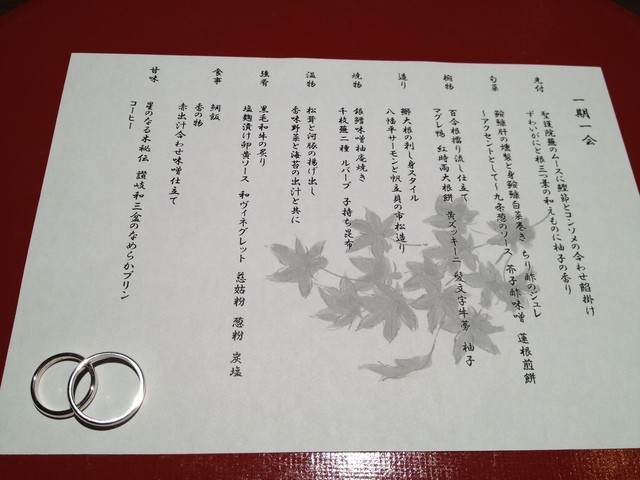 一期一会
先付
聖護院蕪のムースに鰹節とコンソメの合わせ餡掛け
ずわいがにと根三つ葉の和えものに柚子の香り
旬菜
鮟鱇肝の燻製と身鮟鱇白菜巻き ちり酢のジュレ
~アクセントとして~九条葱のソース 芥子酢味噌 蓮根煎餅
椀物
百合根擂り流し仕立て
マグレ鴨 紅時雨大根餅 黄ズッキーニ 髪文字牛蒡 柚子
造り
鰤大根の刺し身スタイル
八幡平サーモンと帆立貝の市松造り
焼物
銀鱈味噌柚庵焼き
千枚蕪二種 ルバーブ 子持ち昆布
温物
松茸と河豚の揚げ出し
香味野菜と海苔の出汁と共に
強肴
黒毛和牛の炙り
塩麹漬け卵黄ソース 和ヴィネグレット 慈姑粉 葱粉 炭塩
食事
鯛飯
香の物
赤出汁合わせ味噌仕立て
甘味
星のなる木秘伝 讃岐和三盆のなめらかプリン
コーヒー